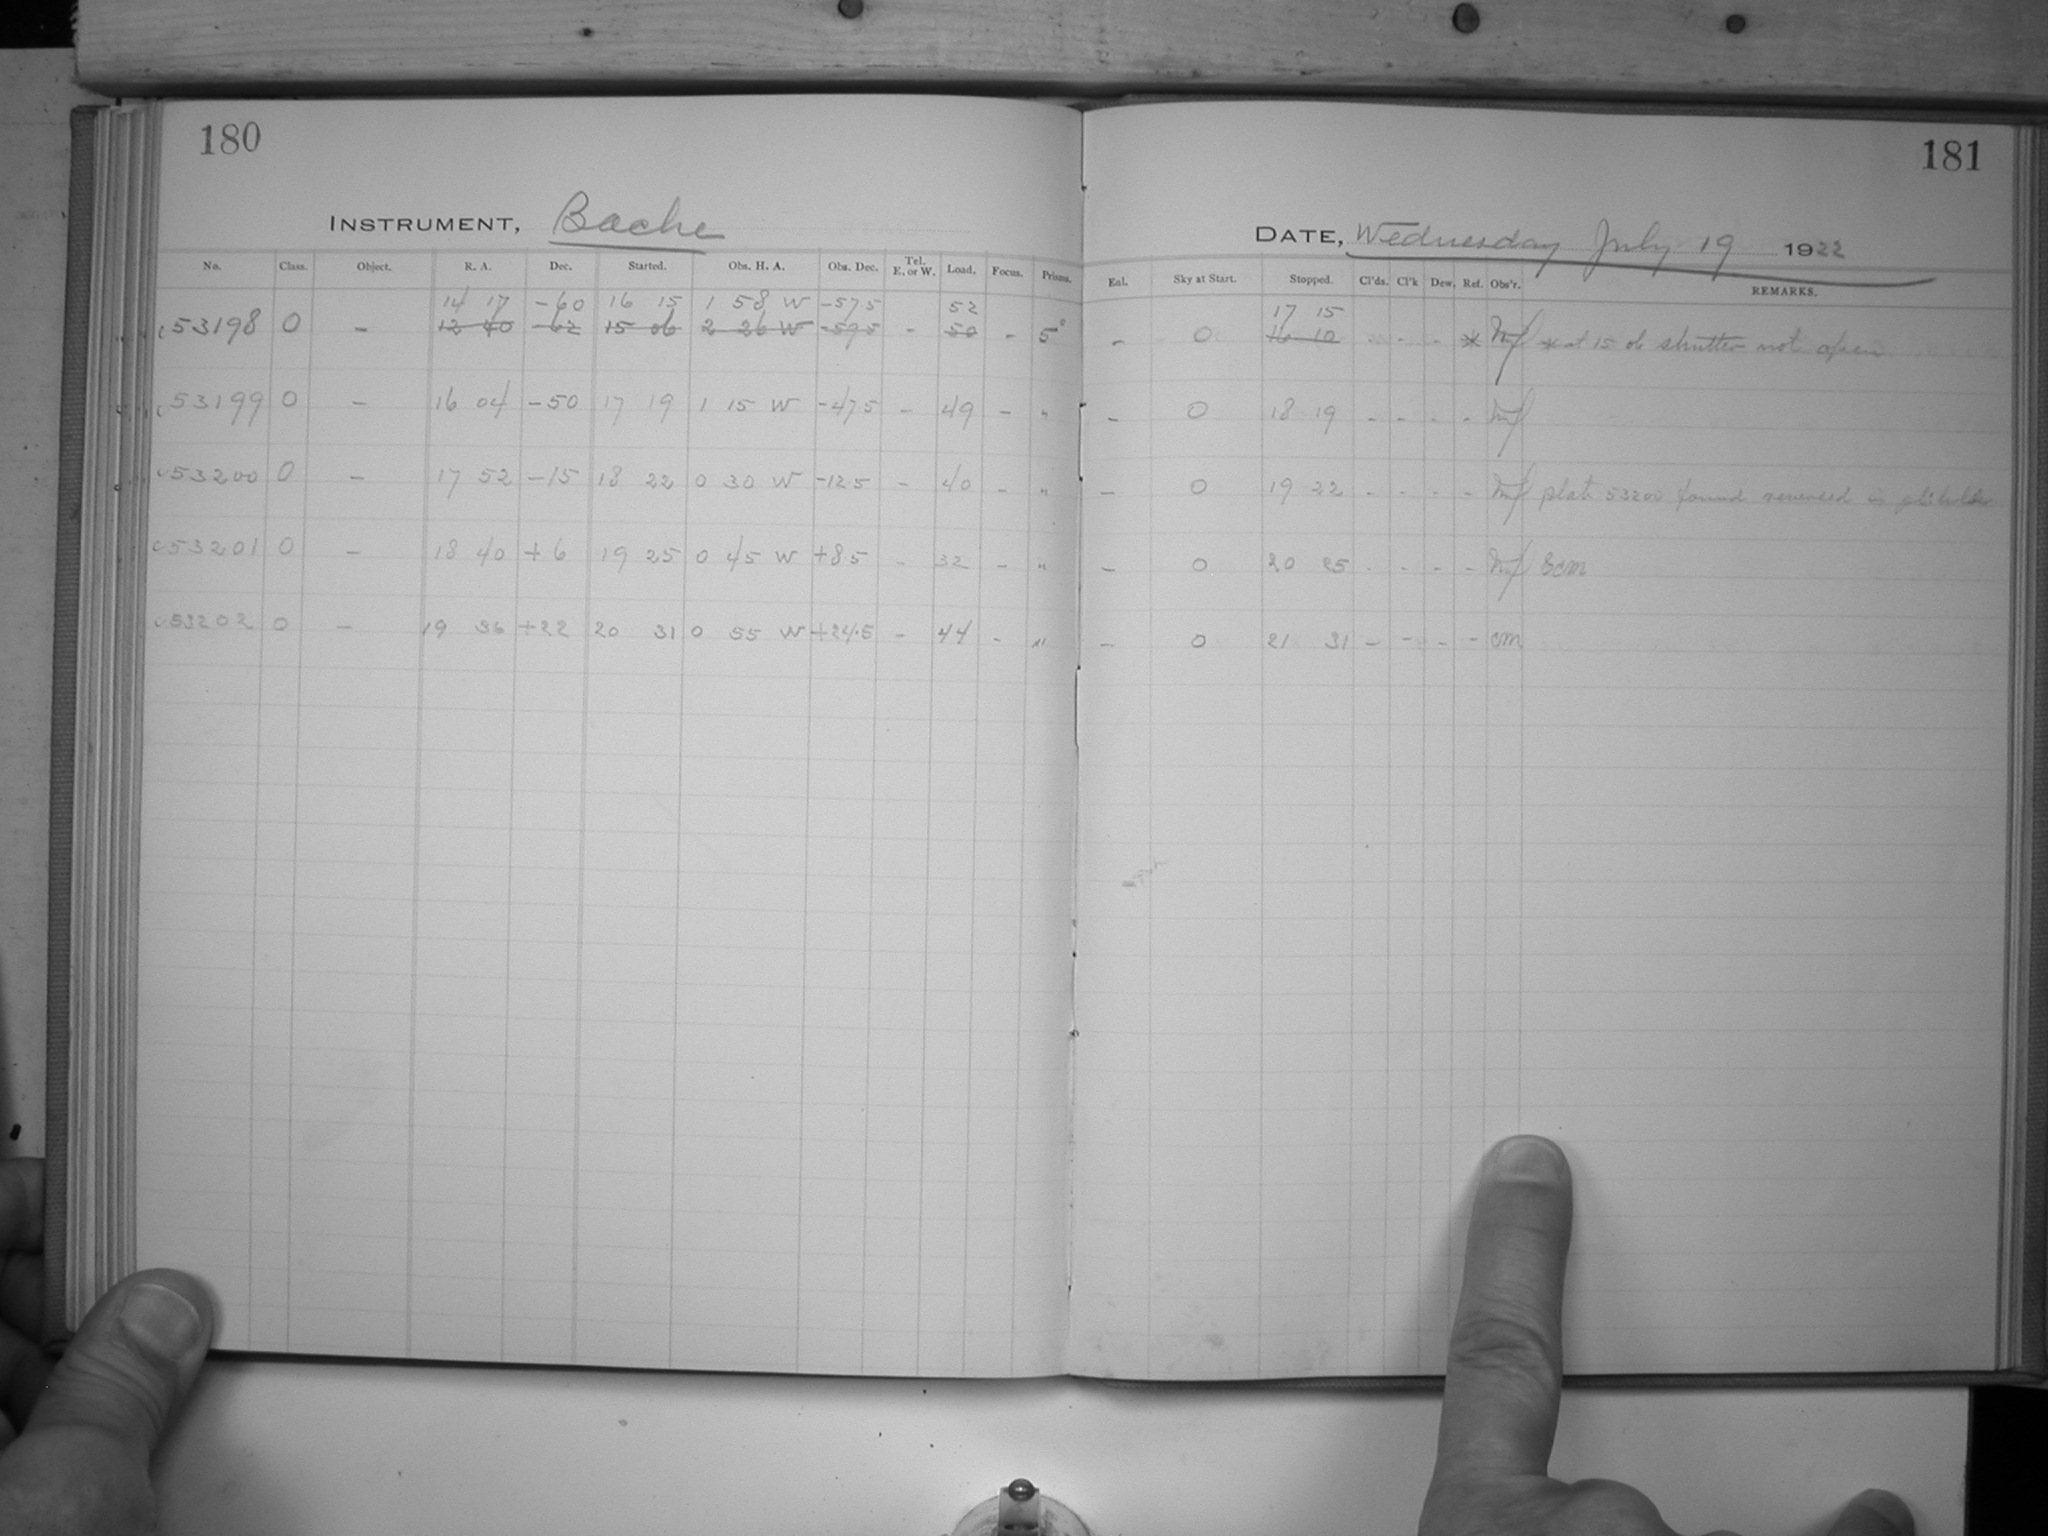 180
INSTRUMENT, Bache
No. Class. Object. R. A. Dec. Started. Obs. H. A. Obs. Dec. Tel. E. or W. Load. Focus. Prisms.
14 17 -60 16 15 1 58 W -57.5 52
c53198 0 - 12 40 -62 15 06 2 26 W -59.5 - 50 - 5°
c53199 0 - 16 04 -50 17 19 1 15 W -47.5 - 49 - "
c53200 0 - 17 52 -15 18 22 0 30 W -12.5 - 40 - "
c53201 0 - 18 40 +6 19 25 0 45 W +8.5 - 32 - "
c53202 0 - 19 36 +22 20 31 0 55 W +24.5 - 44 - "
181
DATE, Wednesday July 19 1922
Eal. Sky at Start. Stopped. Cl'ds. Cl'k Dew. Ref. Obs'r. REMARKS.
17 15
- 0 16 10 - - - * * at 15 06 shutter not open
- 0 18 19 - - - -
- 0 19 22 - - - - plate 53200 found reversed in
- 0 20 25 - - - - &cm
- 0 21 31 - - - - cm